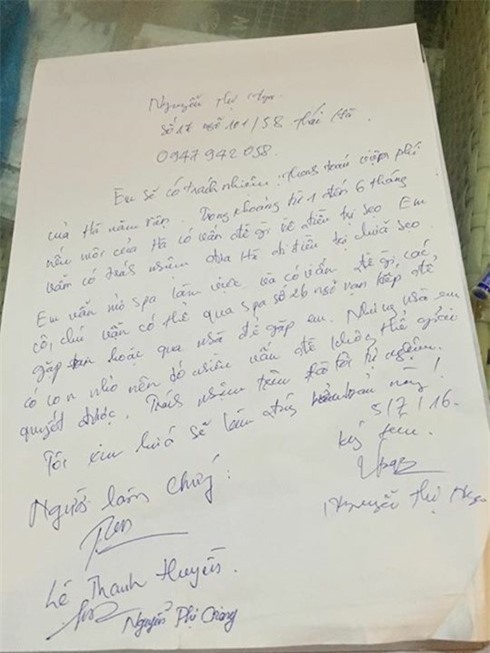 Nguyễn Thị Nga
Số 17 ngõ 101/58 Thái Hà
0947942058
Em sẽ có trách nhiệm thanh toán viện phí
của Hà nằm viện. Trong khoảng từ 1 đến 6 tháng
nếu môi của Hà có vấn đề gì về điều trị sẹo Em
vẫn có trách nhiệm đưa Hà đi điều trị chữa sẹo
Em vẫn mở spa làm việc và có vấn đề gì các
cô chú vẫn có thể qua spa số 26 ngõ Vạn Kiếp để
gặp em hoặc qua nhà để gặp em. Nhưng vì em
có con nhỏ nên đó nhiều vấn đề không thể giải
quyết được. Trách nhiệm tiền
Tôi xin hứa sẽ làm đúng này!
5/7/16.
Ký tên
Nguyễn Thị Nga
Người làm chứng:
Lê Thanh Huyền.
Nguyễn Thị Giang